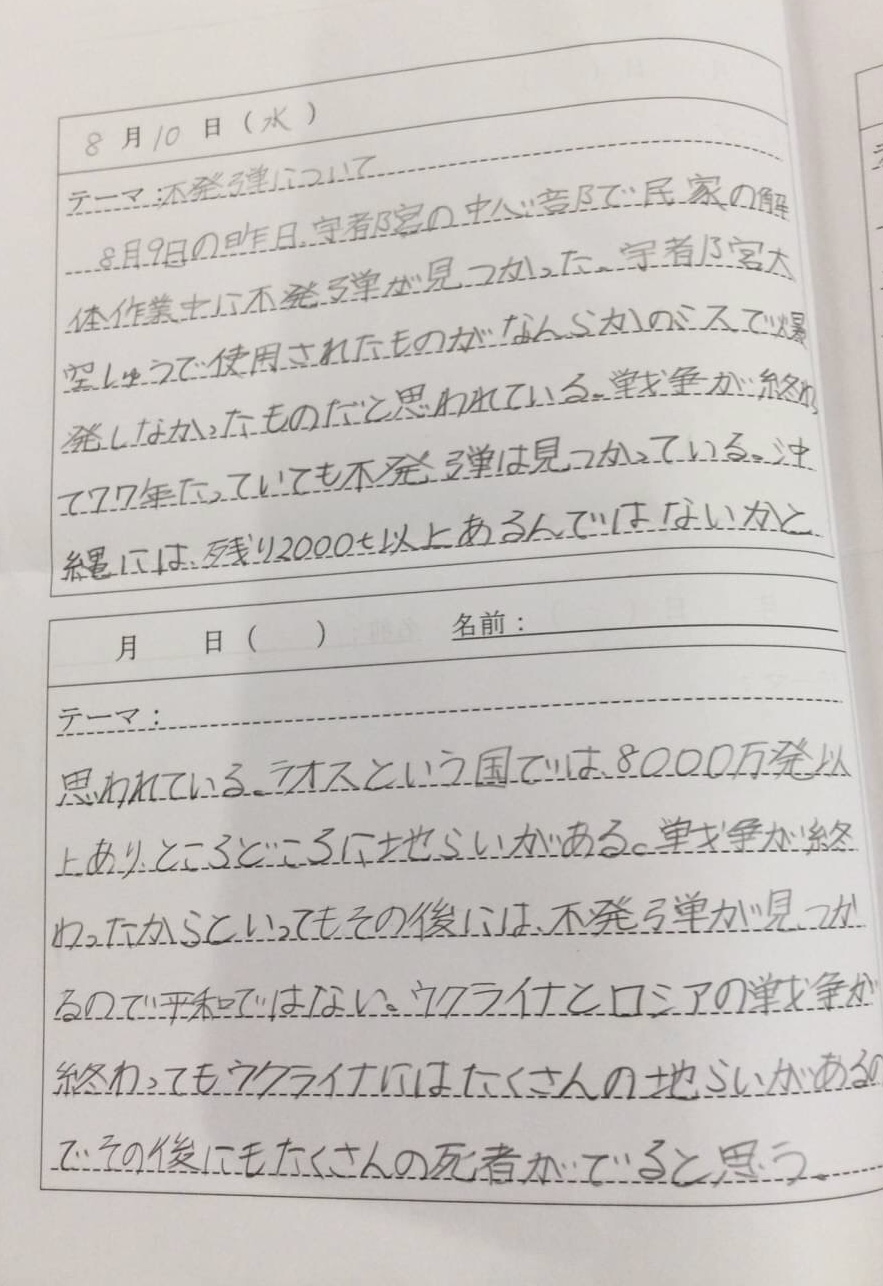 8月10日(水)
テーマ:不発弾について
8月9日の昨日、宇都宮の中心部で民家の解
体作業中に不発弾が見つかった。宇都宮大
空しゅうで使用されたものがなんらかのミスで爆
発しなかったものだと思われている。戦争が終わっ
て77年たっていても不発弾は見つかっている。沖
縄には、残り2000t以上あるんではないかと
月 日( ) 名前:
テーマ:
思われている。ラオスという国では、8000万発以
上あり、ところどころに地らいがある。戦争が終
わったからといってもその後には、不発弾が見つか
るので平和ではない。ウクライナとロシアの戦争が
終わってもウクライナにはたくさんの地らいがあるの
でその後にもたくさんの死者がでると思う。